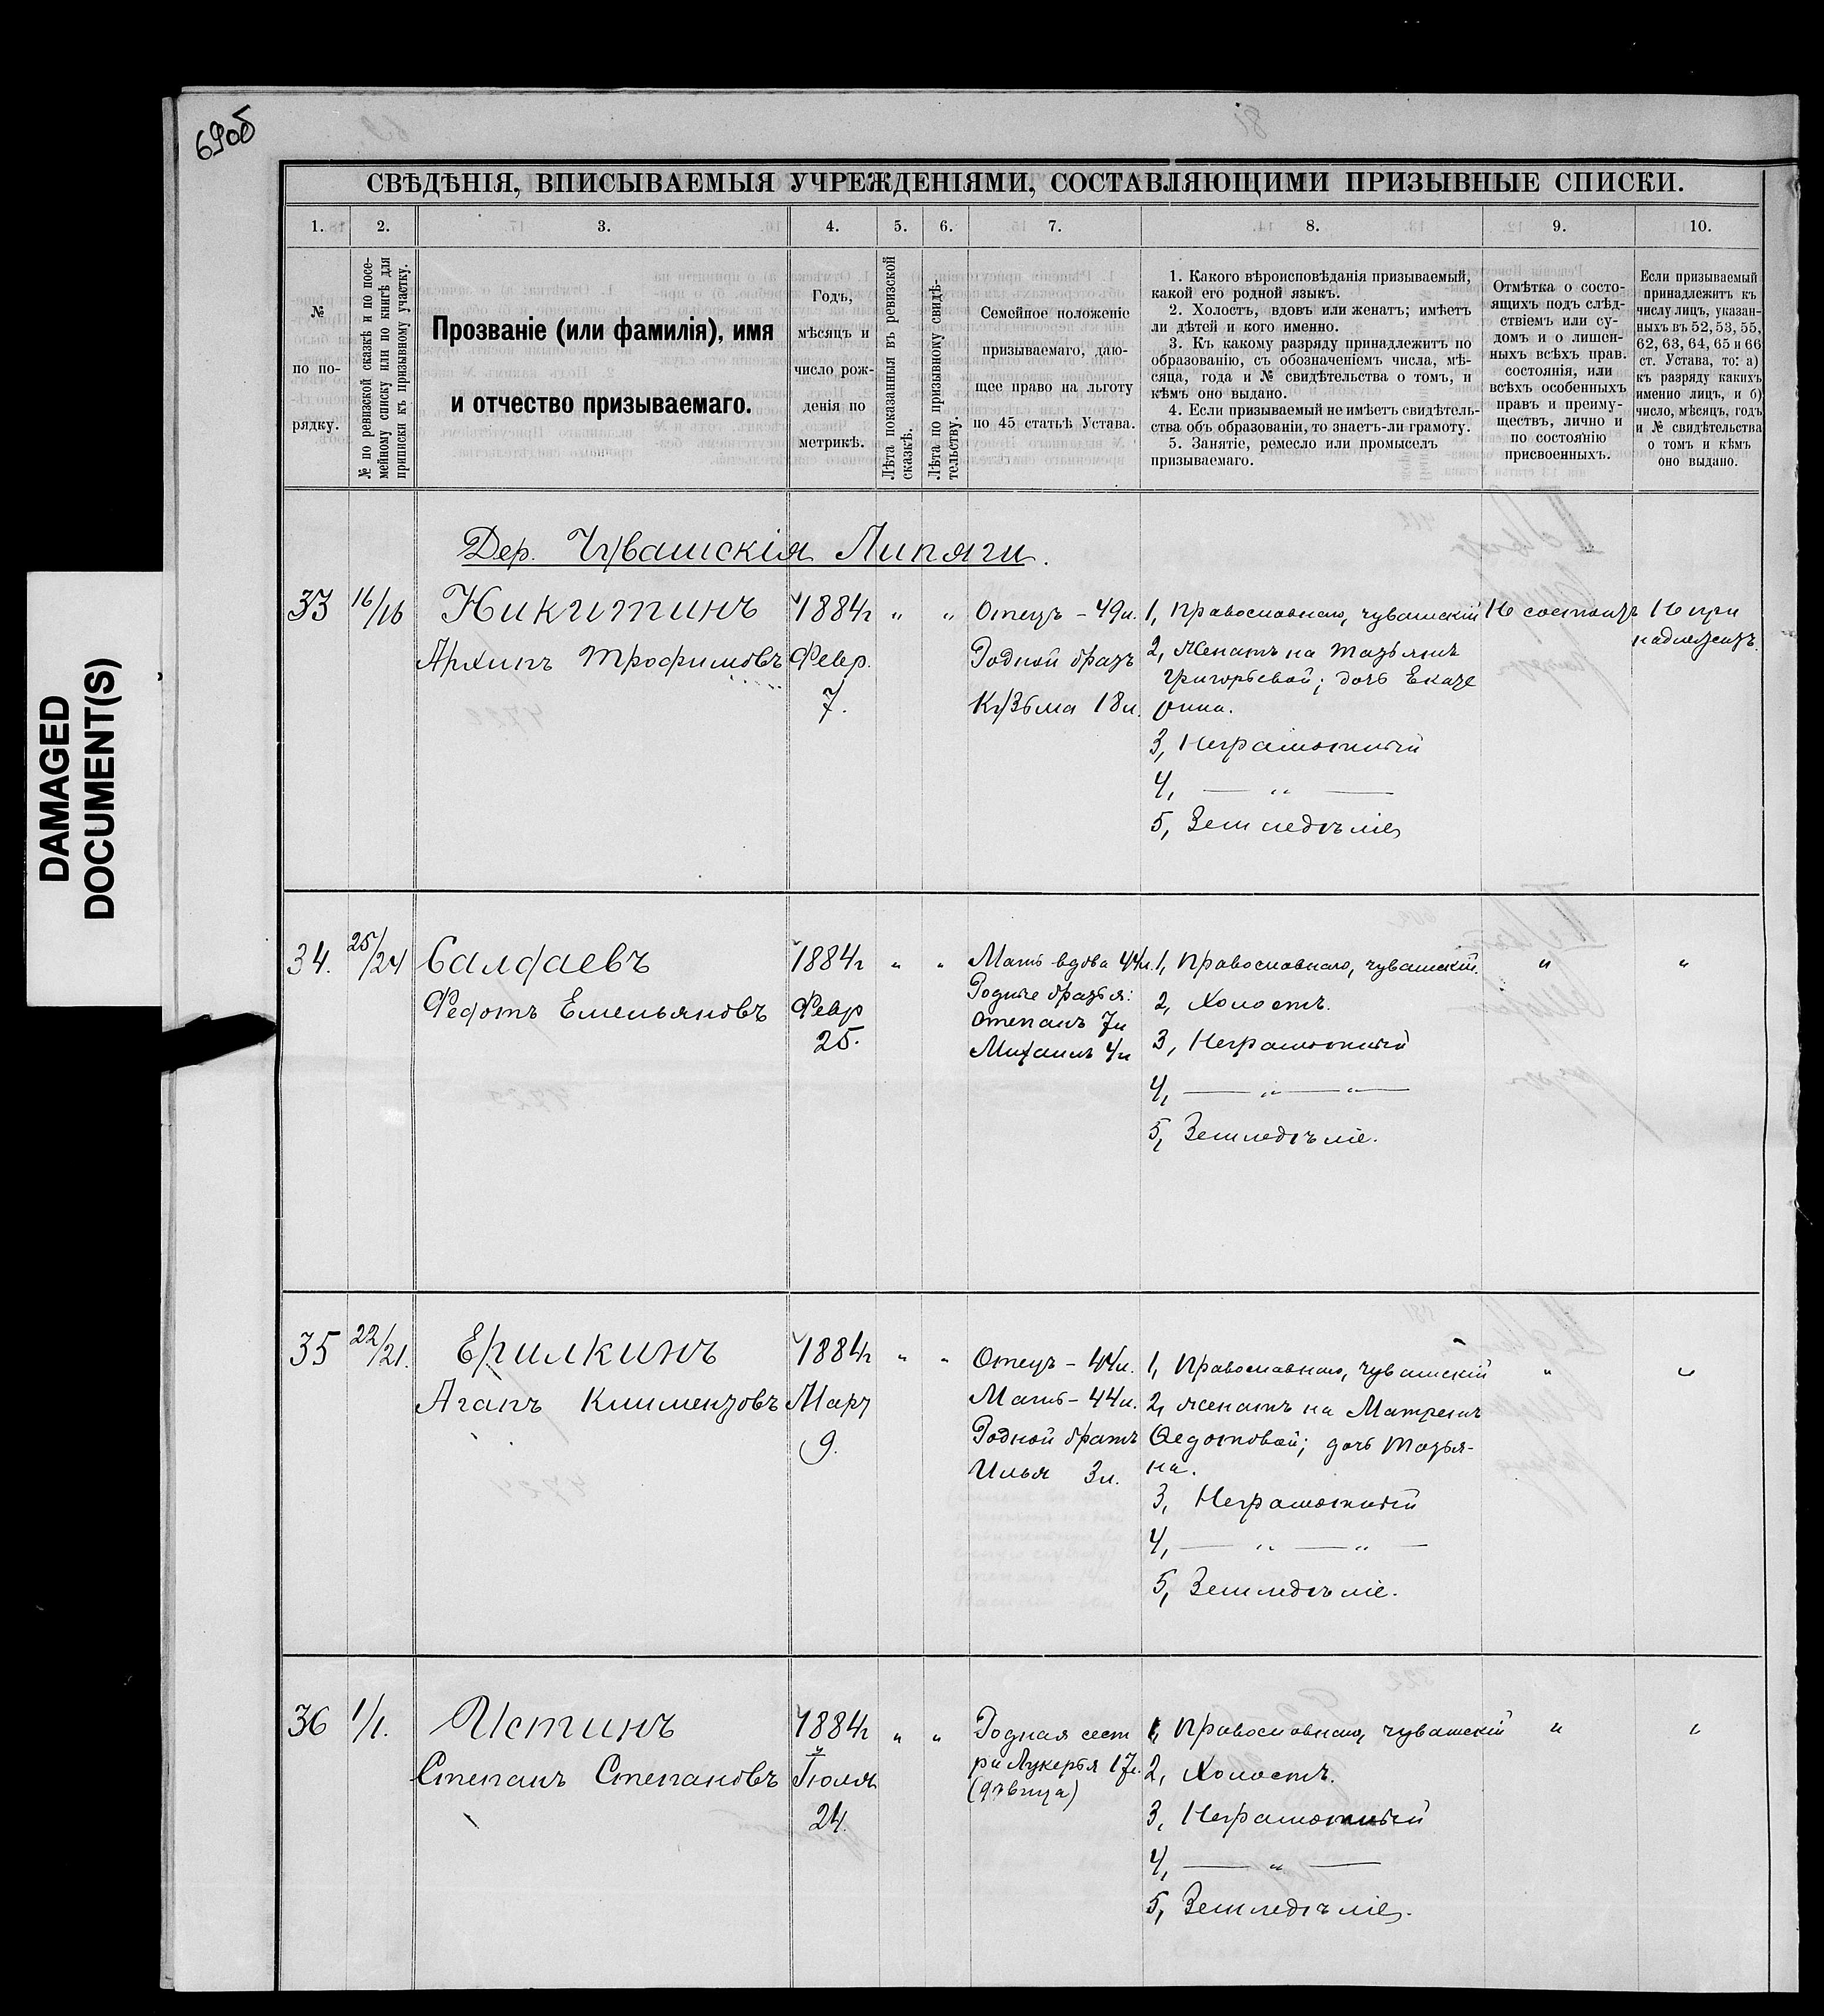 69об
DAMAGED
DOCUMENT(S)
СВѢДѢНІЯ, ВПИСЫВАЕМЫЯ УЧРЕЖДЕНІЯМИ, СОСТАВЛЯЮЩИМИ ПРИЗЫВНЫЕ СПИСКИ.
1. 2. 3. 4. 5. 6. 7. 8. 9. 10.
№
по по-
рядку.
№ по ревизской сказкѣ и по посе-
мейному списку или по книгѣ для
приписки къ призывному участку.
Прозваніе (или фамилія), имя
и отчество призываемаго.
Годъ,
мѣсяцъ и
число рож-
денія по
метрикѣ.
Лѣта показанныя въ ревизской
сказкѣ.
Лѣта по призывному свидѣ-
тельству.
Семейное положеніе
призываемаго, даю-
щее право на льготу
по 45 статьѣ Устава.
1. Какого вѣроисповѣданія призываемый,
какой его родной языкъ.
2. Холостъ, вдовъ или женатъ; имѣетъ
ли дѣтей и кого именно.
3. Къ какому разряду принадлежитъ по
образованію, съ обозначеніемъ числа, мѣ-
сяца, года и № свидѣтельства о томъ, и
кѣмъ оно выдано.
4. Если призываемый не имѣетъ свидѣтель-
ства объ образованіи, то знаетъ-ли грамоту.
5. Занятіе, ремесло или промыселъ
призываемаго.
Отмѣтка о состо-
ящихъ подъ слѣд-
ствіемъ или су-
домъ и о лишен-
ныхъ всѣхъ прав.
состоянія, или
всѣхъ особенныхъ
правъ и преиму-
ществъ, лично и
по состоянію
присвоенныхъ.
Если призываемый
принадлежитъ къ
числу лицъ, указан-
ныхъ въ 52, 53, 55,
62, 63, 64, 65 и 66
ст. Устава, то: а)
къ разряду какихъ
именно лицъ, и б)
число, мѣсяцъ, годъ
и № свидѣтельства
о томъ и кѣмъ
оно выдано.
Дер. Чувашскія Липяги.
33 16/16 Никитинъ 1884г " " Отецъ - 49л. 1, Православнаго, чувашскій Не состоитъ Не при
Архипъ Трофимовъ Февр. Родной братъ 2, Женатъ на Татьянѣ надлежитъ.
Григорьевой; дочь Екате
7. Кузьма 18л. рина.
3, Неграмотный
4, — " —
5, Земледѣліе
34. 25/24 Салдаевъ 1884г " " Мать вдова 44л. 1, Православнаго, чувашскій. " "
Родные братья:
Федотъ Емельяновъ Февр 2, Холостъ.
Степанъ 7л
25. Михаилъ 4л 3, Неграмотный
4, — " — " —
5, Земледѣліе.
35 22/21. Ерилкинъ 1884г " " Отецъ - 44л. 1, Православнаго, чувашскій " "
Агапъ Климентовъ Март Мать - 44л. 2, Женатъ на Матренѣ
9. Родной братъ Ѳедотовой; дочь Татья-
Илья 3л. на.
3, Неграмотный
4, — " — " —
5, Земледѣліе.
36 1/1. Истинъ 1884г " " Родная сест 1, Православнаго, чувашскій " "
Степанъ Степановъ Іюля ра Лукерья 17л. 2, Холостъ.
(дѣвица)
24. 3, Неграмотный
4, — " —
5, Земледѣліе.